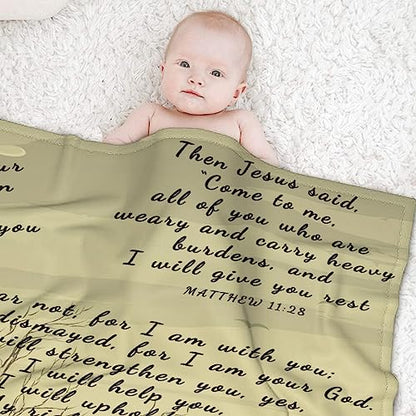 Then Jesus said,
"Come to me,
all of you who are
weary and carry heavy
burdens, and
I will give you rest
MATTHEW 11:28
you
not, for I am with you;
dismayed, for I am your God.
will strengthen you, yes,
I will help you,
will